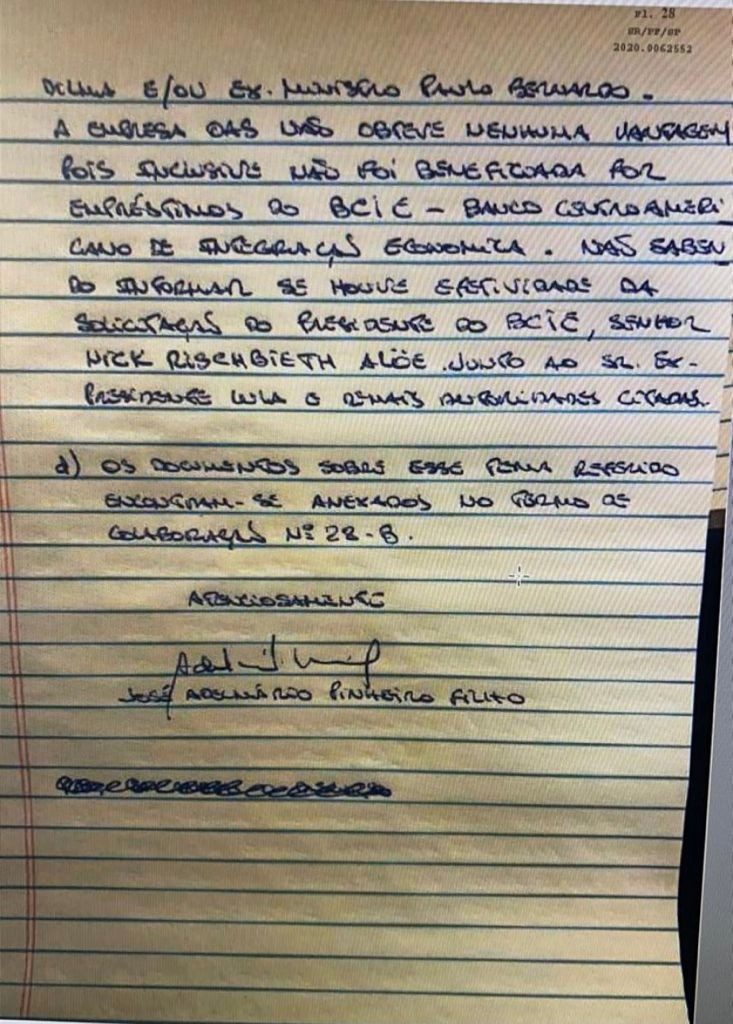 Fl. 28
SR/PF/SP
2020.0062552
DILMA E/OU EX. MINISTRO PAULO BERNARDO.
A EMPRESA OAS NÃO OBTEVE NENHUMA VANTAGEM
POIS INCLUSIVE NÃO FOI BENEFICIADA POR
EMPRÉSTIMOS DO BCIE - BANCO CENTROAMERI
CANO DE INTEGRAÇÃO ECONOMICA. NÃO SABEN
DO INFORMAR SE HOUVE EFETIVIDADE DA
SOLICITAÇÃO DO PRESIDENTE DO BCIE, SENHOR
NICK RISCHBIETH ALÖE JUNTO AO SR. EX-
PRESIDENTE LULA E DEMAIS AUTORIDADES CITADAS.
d) OS DOCUMENTOS SOBRE ESSE TEMA REFERIDO
ENCONTRAM-SE ANEXADOS NO TERMO DE
COLABORAÇÃO Nº 28-B.
ATENCIOSAMENTE
JOSÉ ADELMÁRIO PINHEIRO FILHO